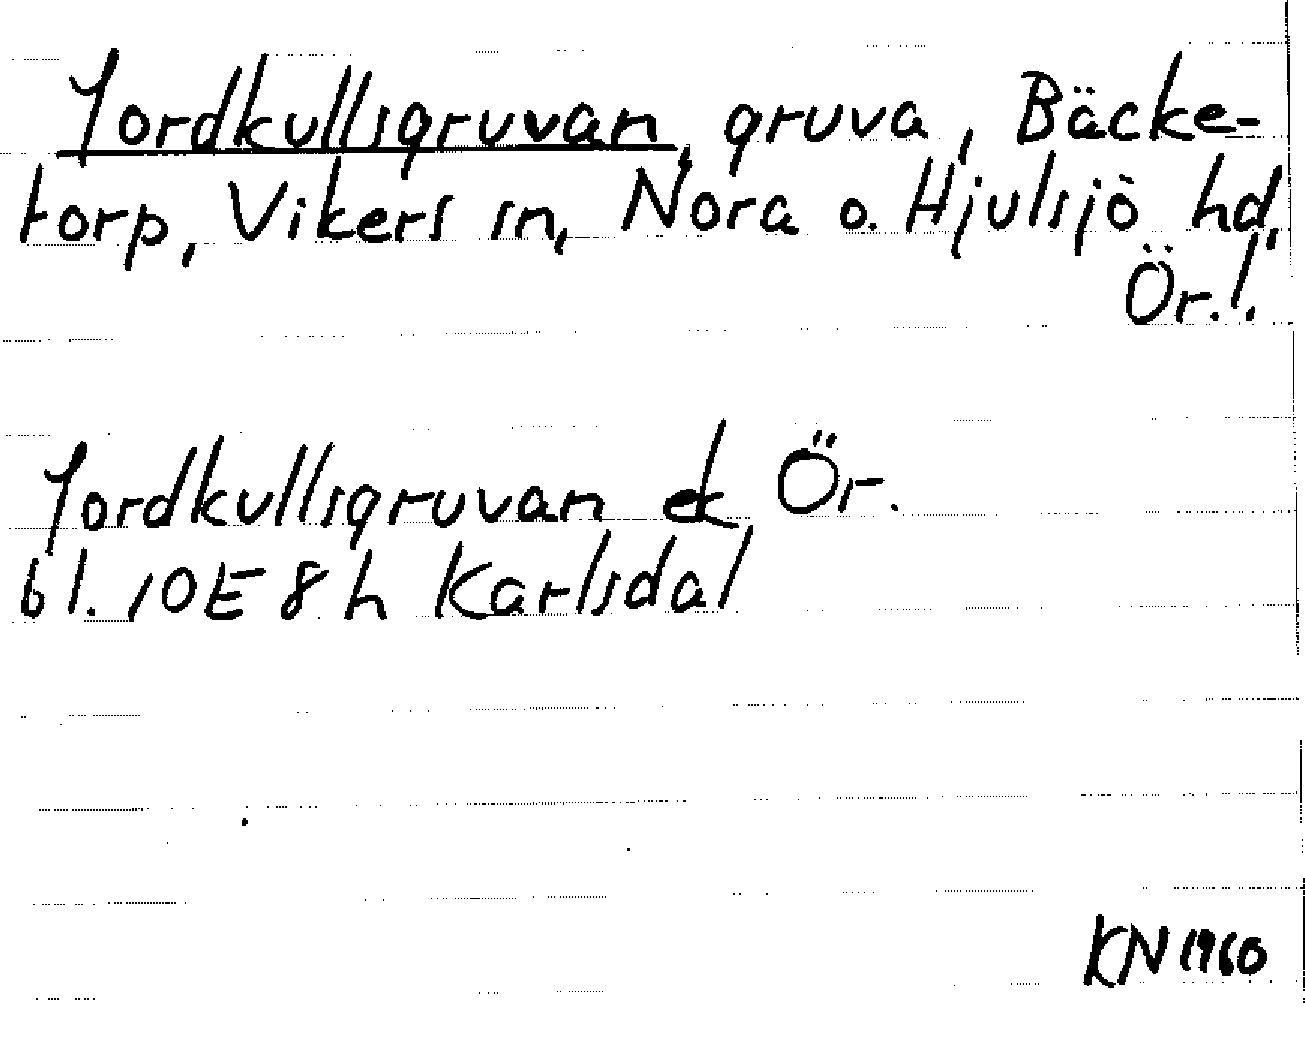 Jordkullsgruvan, gruva, Bäcke-
torp, Vikers sn, Nora o. Hjulsjö hd,
Ör. l.
Jordkullsgruvan ek, Ör.
bl. 10E 8h Karlsdal
KN 1960